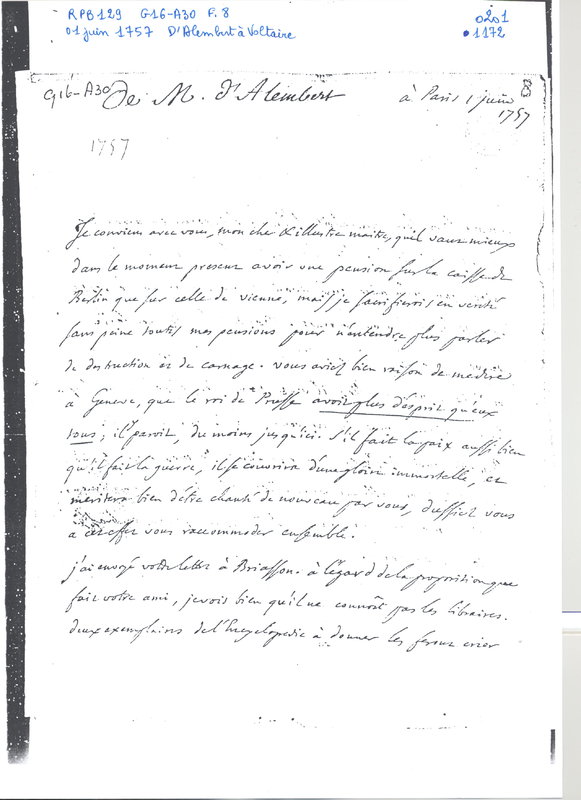 RPB129 G16-A30 F.8
01 juin 1757 D'Alembert à Voltaire
0201
1172
G16-A30
De M. d'Alembert
à Paris 1 juin
1757
8
1757
Je conviens avec vous, mon cher & illustre maitre, qu'il vaut mieux
dans le moment present avoir une pension sur la caisse de
Berlin que sur celle de vienne, mais je sacrifierois en verité
sans peine toutes mes pensions pour n'entendre plus parler
de destruction et de carnage. vous aviez bien raison de me dire
à Geneve, que le roi de Prusse avoit plus d'esprit qu'eux
tous; il paroit, du moins jusqu'ici. S'il fait la paix aussi bien
qu'il fait la guerre, il se couvrira d'une gloire immortelle, et
meritera bien d'être chanté de nouveau par vous, dussiez vous
à cet effet vous raccommoder ensemble.
j'ai envoyé votre lettre à Briasson. à l'égard de la proposition que
fait votre ami, je vois bien qu'il ne connoit pas les libraires.
deux exemplaires de l'Encyclopedie à donner les feront crier